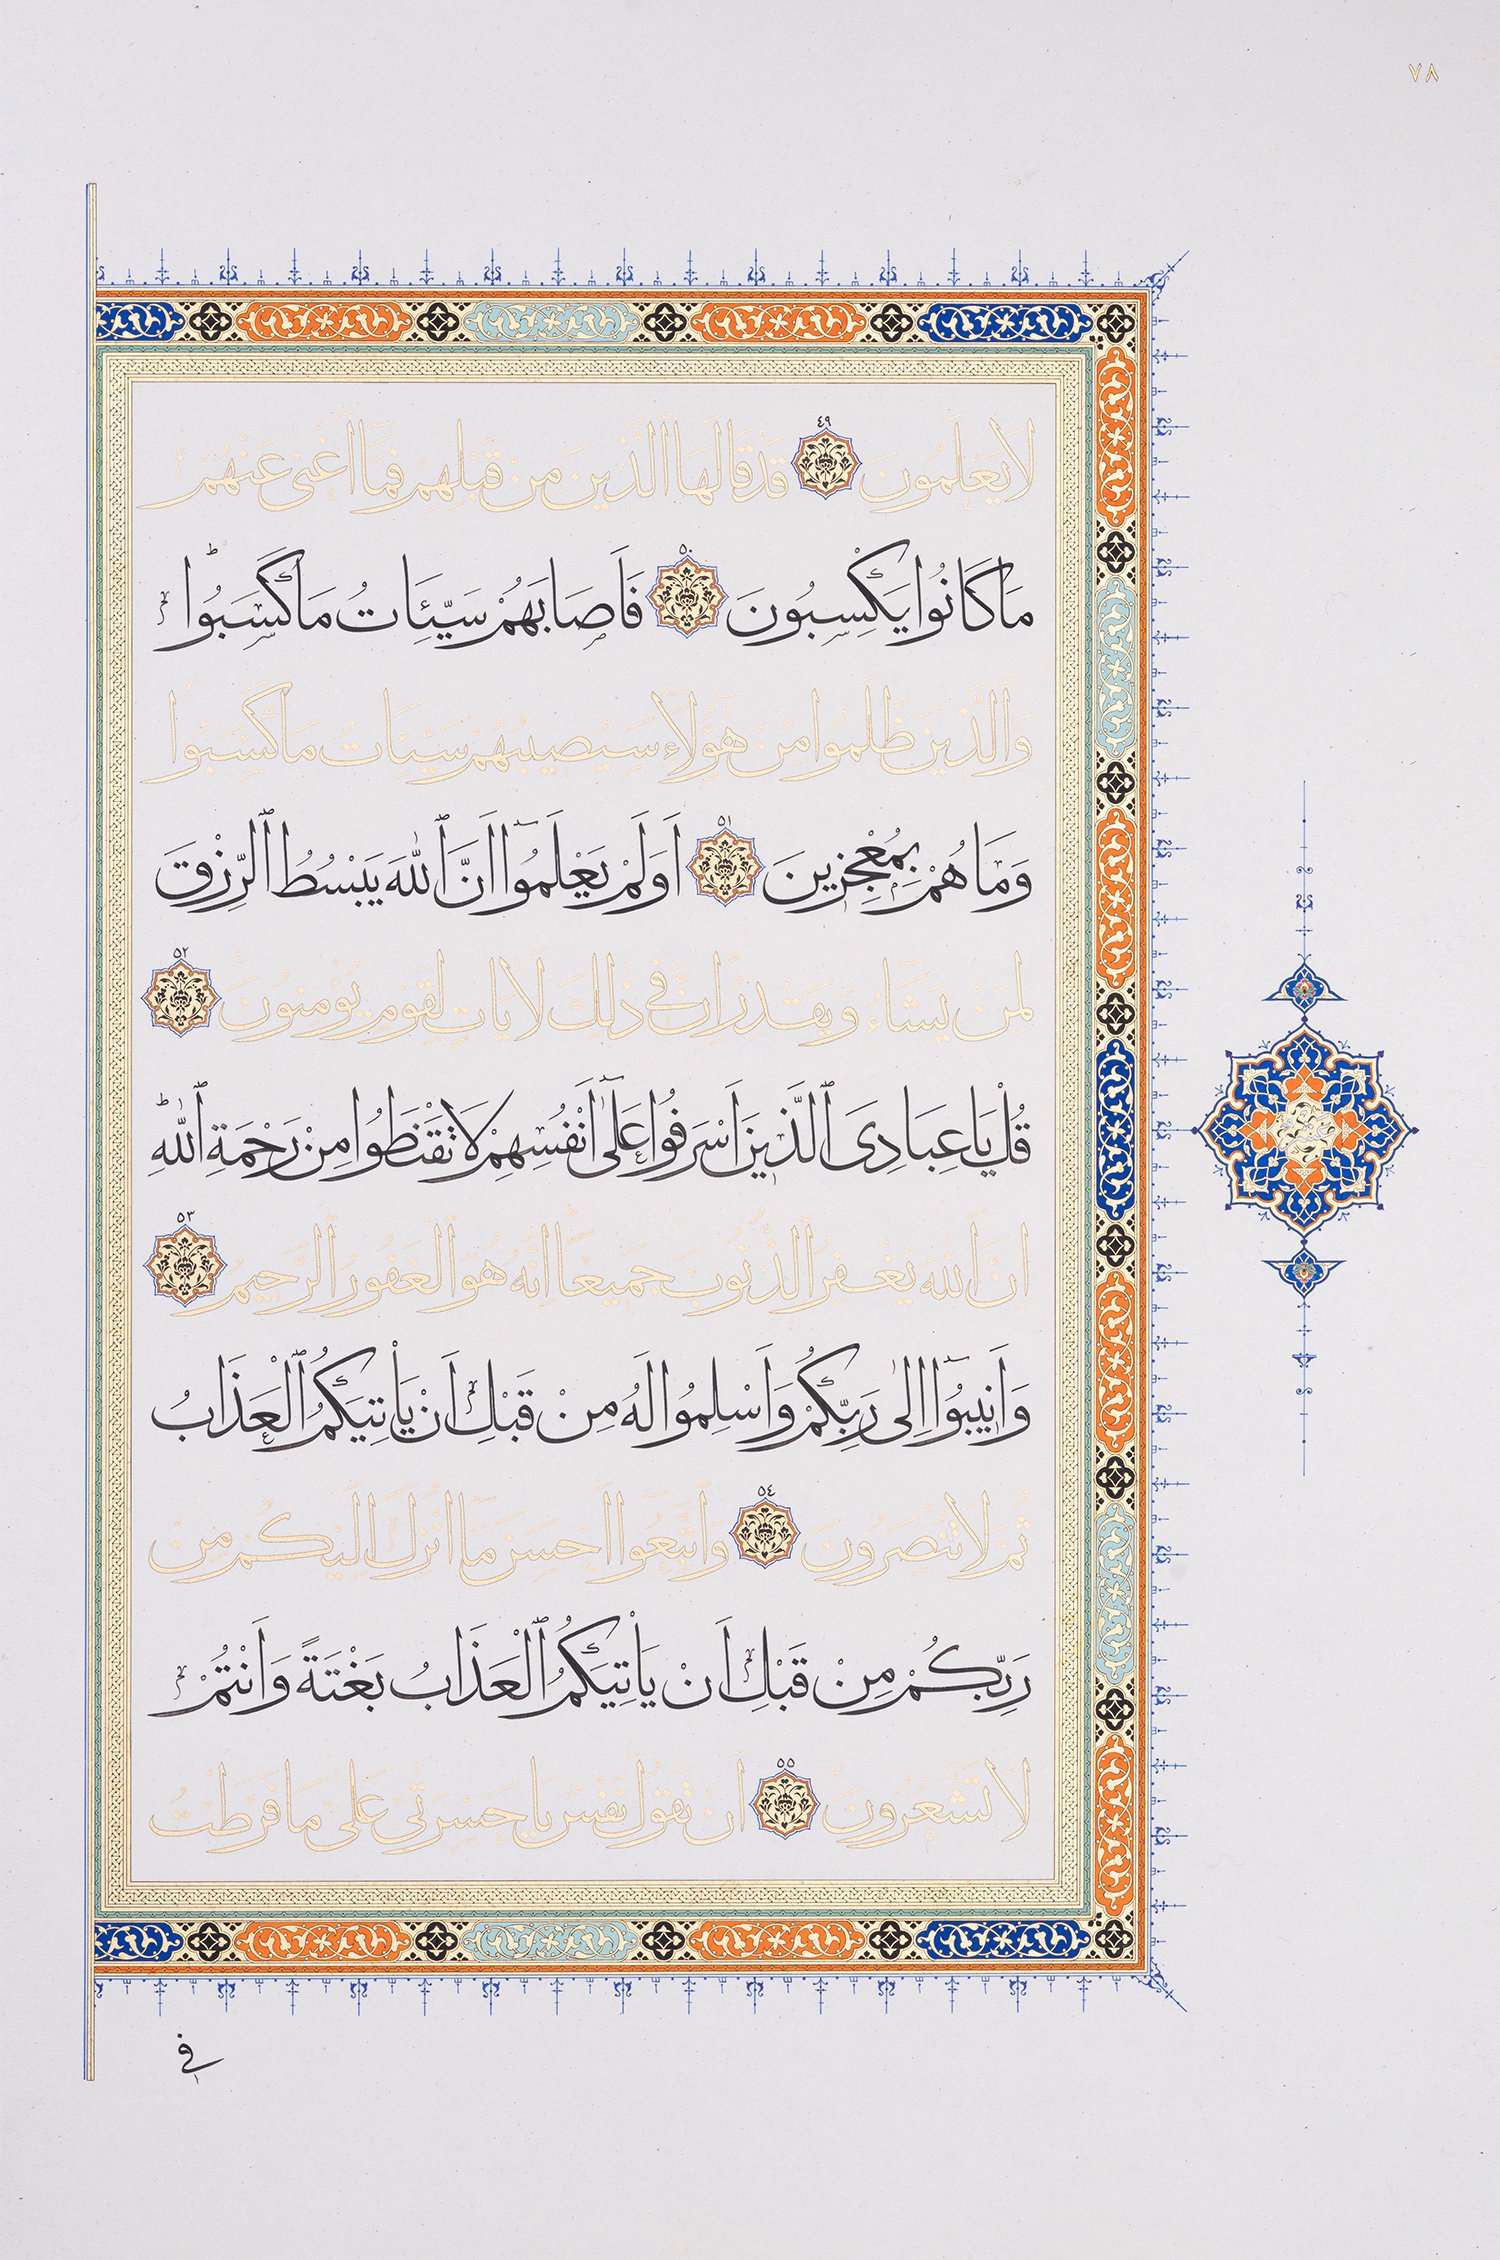 ٧٨
لَا يَعْلَمُونَ ٤٩ قَدْ قَالَهَا الَّذِينَ مِنْ قَبْلِهِمْ فَمَآ اَغْنٰى عَنْهُمْ
مَا كَانُوا يَكْسِبُونَ ٥٠ فَاَصَابَهُمْ سَيِّئَاتُ مَا كَسَبُواۜ
وَالَّذِينَ ظَلَمُوا مِنْ هٰٓؤُلَآءِ سَيُصِيبُهُمْ سَيِّئَاتُ مَا كَسَبُوا
وَمَا هُمْ بِمُعْجِزِينَ ٥١ اَوَلَمْ يَعْلَمُوٓا اَنَّ ٱللّٰهَ يَبْسُطُ ٱلرِّزْقَ
لِمَنْ يَشَآءُ وَيَقْدِرُ اِنَّ فِي ذٰلِكَ لَاٰيَاتٍ لِقَوْمٍ يُؤْمِنُونَ ٥٢
قُلْ يَا عِبَادِىَ ٱلَّذِينَ اَسْرَفُوا عَلٰٓى اَنْفُسِهِمْ لَا تَقْنَطُوا مِنْ رَحْمَةِ ٱللّٰهِۜ
اِنَّ ٱللّٰهَ يَغْفِرُ ٱلذُّنُوبَ جَمِيعًا اِنَّهُ هُوَ ٱلْغَفُورُ ٱلرَّحِيمُ ٥٣
وَاَنِيبُوٓا اِلٰى رَبِّكُمْ وَاَسْلِمُوا لَهُ مِنْ قَبْلِ اَنْ يَأْتِيَكُمُ ٱلْعَذَابُ
ثُمَّ لَا تُنْصَرُونَ ٥٤ وَاتَّبِعُوٓا اَحْسَنَ مَآ اُنْزِلَ اِلَيْكُمْ مِنْ
رَبِّكُمْ مِنْ قَبْلِ اَنْ يَأْتِيَكُمُ ٱلْعَذَابُ بَغْتَةً وَاَنْتُمْ
لَا تَشْعُرُونَ ٥٥ اَنْ تَقُولَ نَفْسٌ يَا حَسْرَتٰى عَلٰى مَا فَرَّطْتُ
فِى